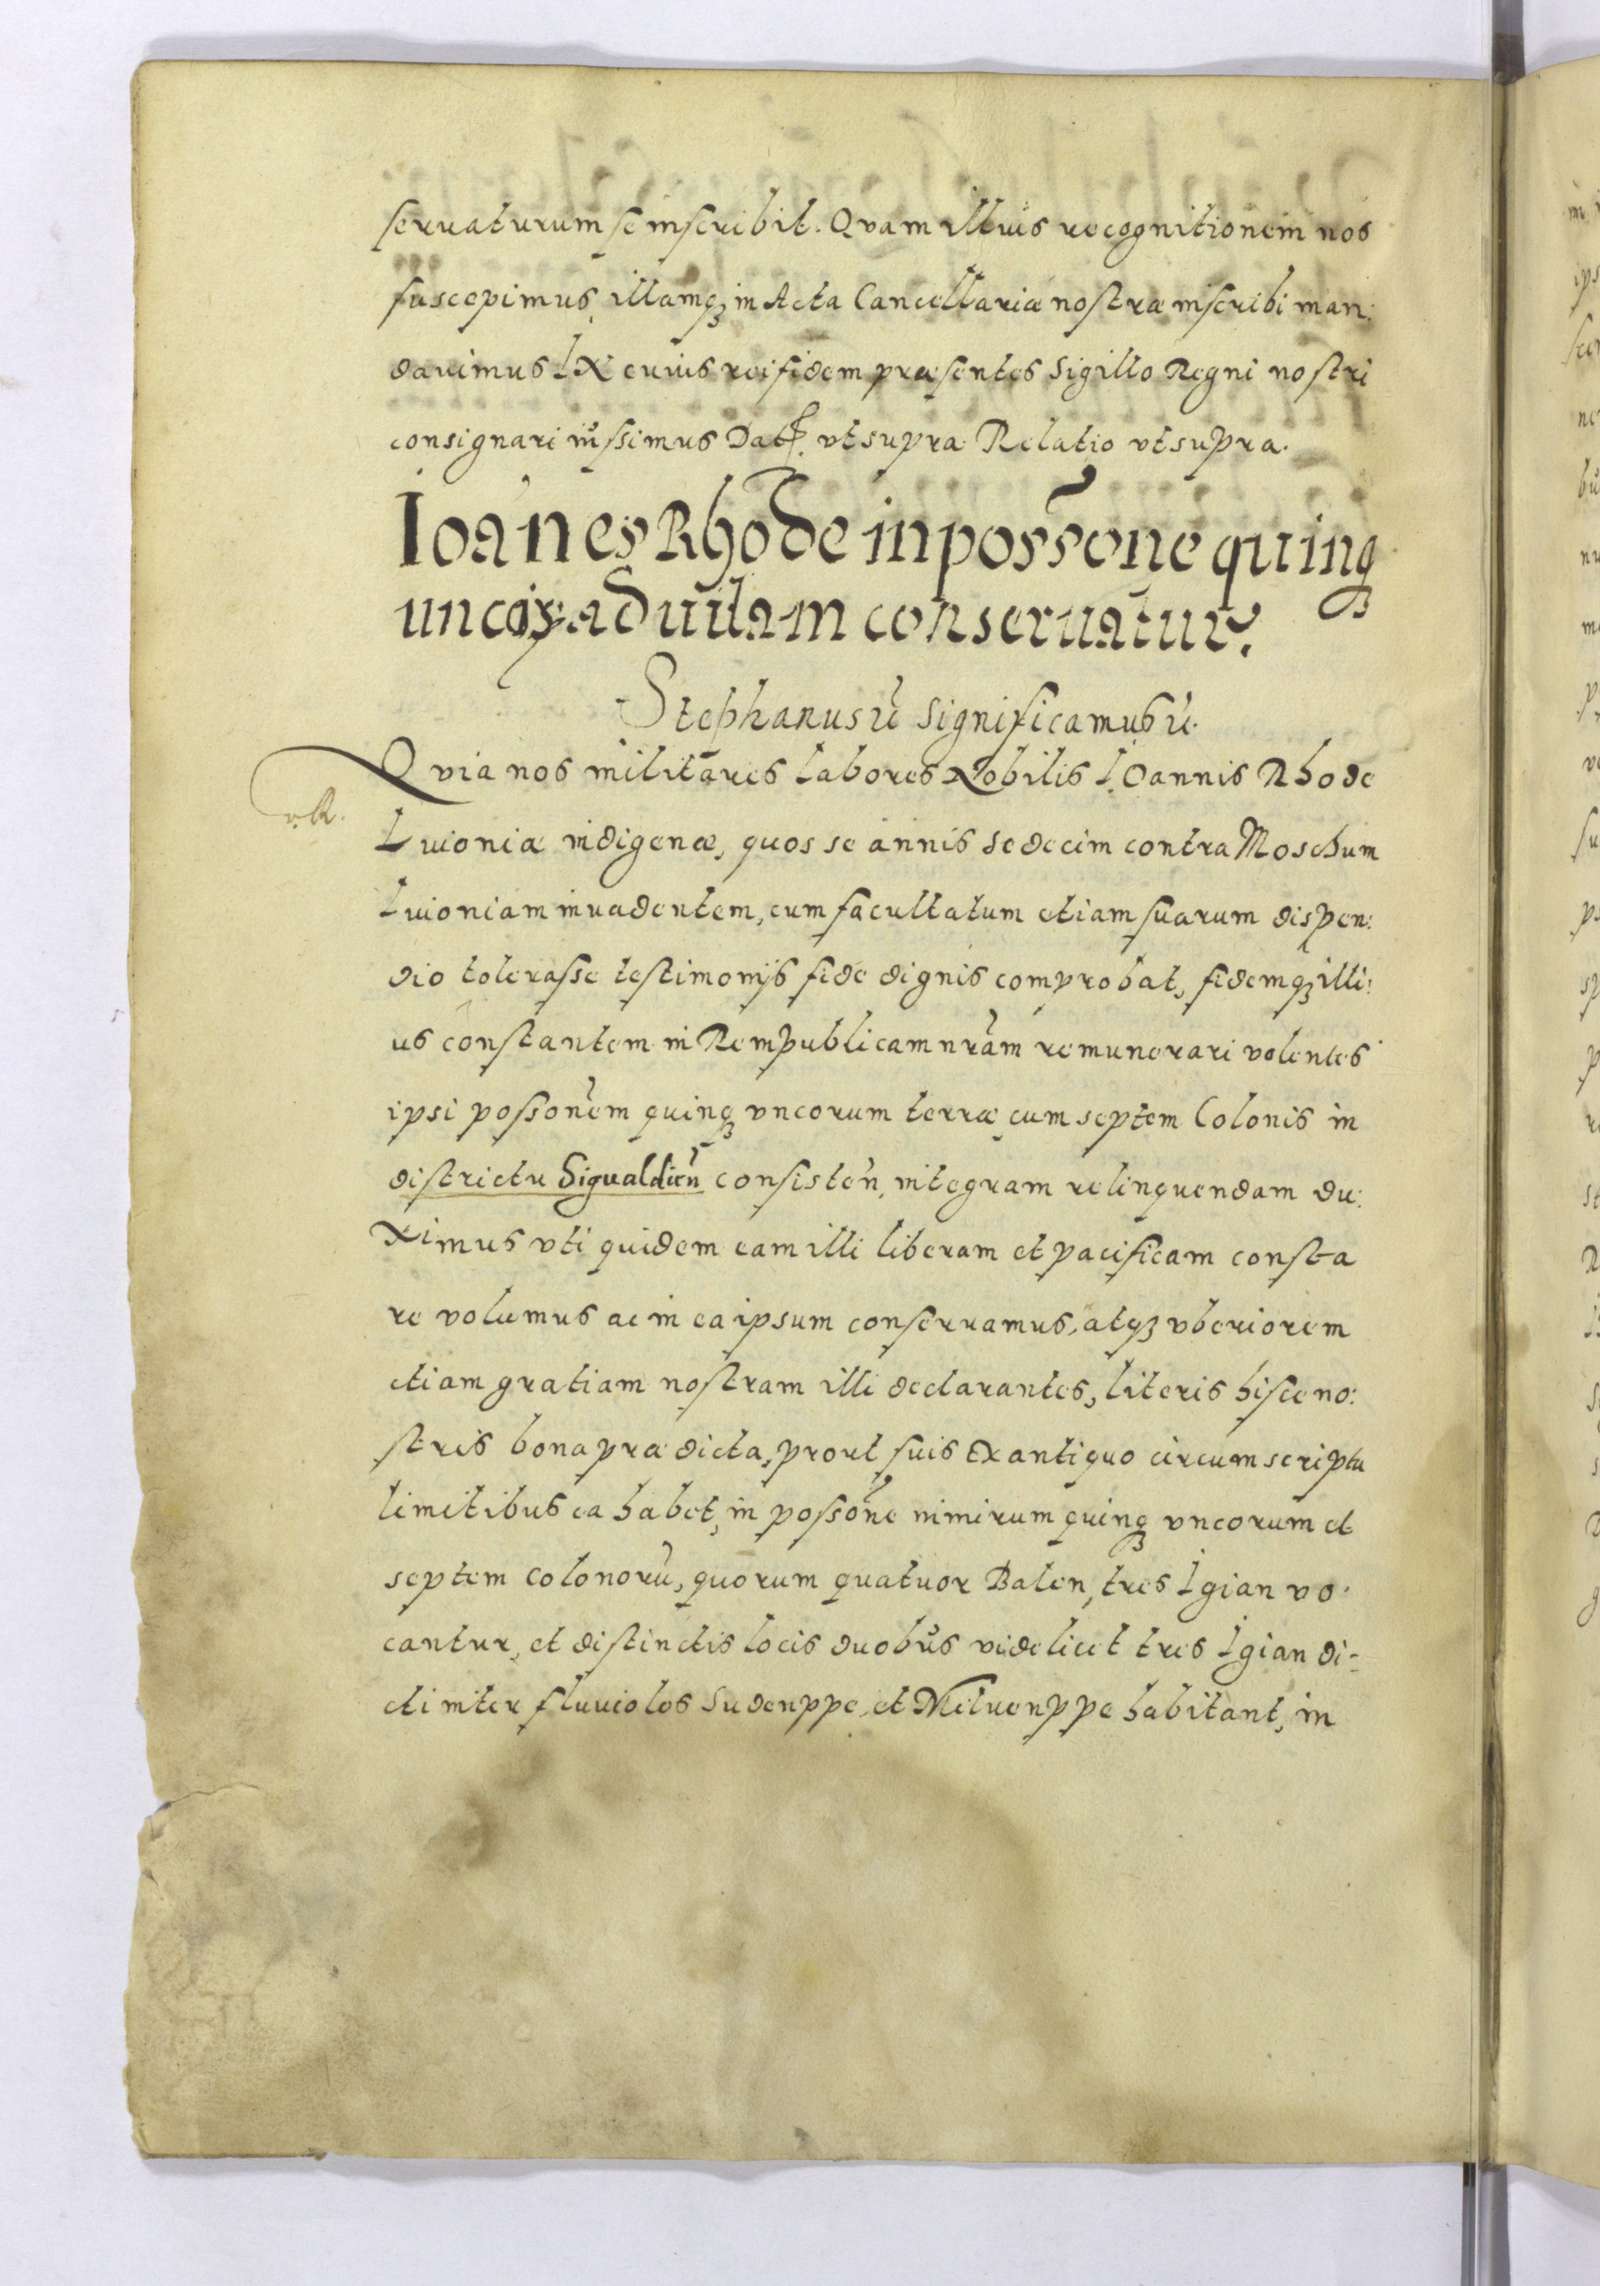 seruaturum se inscribit. Quam illius recognitionem nos
suscepimus, illamq; in Acta Cancellariæ nostræ inscribi man:
dauimus Ix cuius rei fidem præsentes sigillo Regni nostri
consignari iussimus Dat. vt supra Relatio vt supra.
Ioannes Rhode in possone quinq;
uncor. ad vitam conseruatur.
Stephanus significamus
Quia nos militares labores Nobilis Ioannis Rhode
Liuoniæ indigenæ, quos se annis sedecim contra Moschum
Liuoniam inuadentem, cum facultatum etiam suarum dispen:
dio tolerasse testimonijs fide dignis comprobat, fidemq; illi:
us constantem in Rempublicam nram remunerari volentes
ipsi possonem quinq; vncorum terræ cum septem Colonis in
districtu Sigualdien consisten, integram relinquendam du:
ximus vti quidem eam illi liberam et pacificam consta
re volumus ac in ea ipsum conseruamus, atq; vberiorem
etiam gratiam nostram illi declarantes, literis hisce no:
stris bona prædicta, prout suis ex antiquo circumscripta
limitibus ea habet, in possone nimirum quinq; vncorum et
septem colonoru, quorum quatuor Balen, tres Igian vo:
cantur, et distinctis locis duobus videlicet tres Igian di:
cti inter fluuiolos Sudenppe, et Meluenppe habitant, in